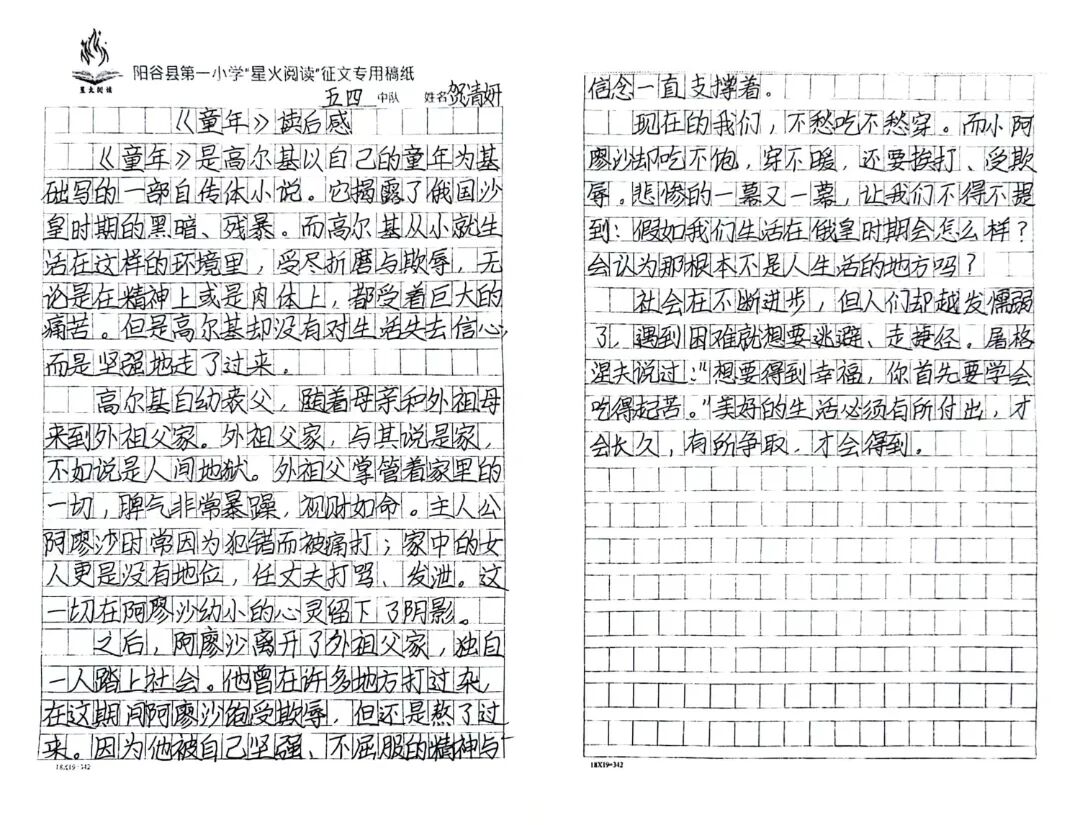 阳谷县第一小学"星火阅读"征文专用稿纸
星火阅读
五四 中队 姓名 贺清妍
《童年》读后感
《童年》是高尔基以自己的童年为基
础写的一部自传体小说。它揭露了俄国沙
皇时期的黑暗、残暴。而高尔基从小就生
活在这样的环境里，受尽折磨与欺辱，无
论是在精神上或是肉体上，都受着巨大的
痛苦。但是高尔基却没有对生活失去信心，
而是坚强地走了过来。
高尔基自幼丧父，随着母亲和外祖母
来到外祖父家。外祖父家，与其说是家，
不如说是人间地狱。外祖父掌管着家里的
一切，脾气非常暴躁，视财如命。主人公
阿廖沙时常因为犯错而被痛打；家中的女
人更是没有地位，任丈夫打骂、发泄。这
一切在阿廖沙幼小的心灵留下了阴影。
之后，阿廖沙离开了外祖父家，独自
一人踏上社会。他曾在许多地方打过杂，
在这期间阿廖沙饱受欺辱，但还是熬了过
来。因为他被自己坚强、不屈服的精神与
18X19=342
信念一直支撑着。
现在的我们，不愁吃不愁穿。而小阿
廖沙却吃不饱，穿不暖，还要挨打、受欺
辱。悲惨的一幕又一幕，让我们不得不提
到：假如我们生活在俄皇时期会怎么样？
会认为那根本不是人生活的地方吗？
社会在不断进步，但人们却越发懦弱
了，遇到困难就想要逃避、走捷径。屠格
涅夫说过："想要得到幸福，你首先要学会
吃得起苦。"美好的生活必须有所付出，才
会长久，有所争取，才会得到。
18X19=342